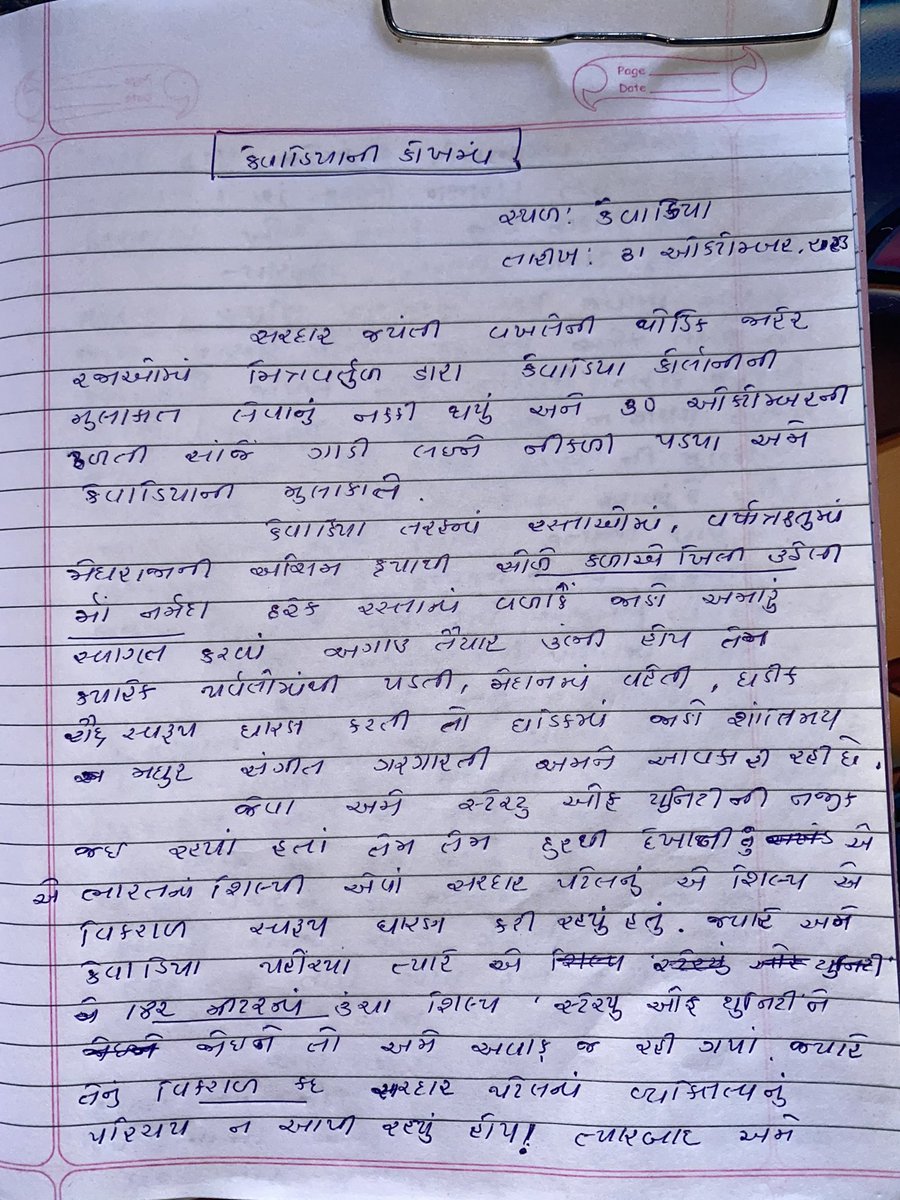 Page
Date
કેવાડિયાની કોખમાં
સ્થળ: કેવાડિયા
તારીખ: 31 ઓક્ટોમ્બર, ૨૦૨૩
સરદાર જયંતી વખતેની થોડિક જાહેર
રજાઓમાં મિત્રવર્તુળ દ્વારા કેવાડિયા કોલોનીની
મુલાકાત લેવાનું નક્કી થયું અને 30 ઓક્ટોમ્બરની
ઢળતી સાંજે ગાડી લઇને નીકળી પડયા અમે
કેવાડિયાની મુલાકાતે.
કેવાડિયા તરફનાં રસ્તાઓમાં, વર્ષાઋતુમાં
મેઘરાજાની અસિમ કૃપાથી સોળે કળાએ ખિલી ઉઠેલી
માઁ નર્મદા દરેક રસ્તાનાં વળાંકે જાણે અમારું
સ્વાગત કરવાં અગાઉ તૈયાર ઉભી હોય તેમ
ક્યારેક પર્વતોમાંથી પડતી, મેદાનમાં વહેતી, ઘડીક
રૌદ્ર સ્વરૂપ ધારણ કરતી તો ઘડિકમાં જાણે શાંતિમય
મધુર સંગીત ગરગારતી અમને આવકારી રહી છે.
જેવા અમે સ્ટેચ્યુ ઓફ યુનિટીની નજીક
જઇ રહયાં હતાં તેમ તેમ દુરથી દેખાતી નું એ
એ ભારતનાં શિલ્પી એવાં સરદાર પટેલનું એ શિલ્પ એ
વિકરાળ સ્વરૂપ ધારણ કરી રહયું હતું. જ્યારે અમે
કેવાડિયા પહોંચ્યાં ત્યારે એ શિલ્પ સ્ટેચ્યું ઓફ યુનિટી
એ 182 મીટરનાં ઉંચા શિલ્પ 'સ્ટેચ્યુ ઓફ યુનિટી'ને
જોઇને જોઇને તો અમે અવાક્ જ રહી ગયાં. જ્યારે
તેનું વિકરાળ કદ સરદાર પટેલનાં વ્યક્તિત્વનું
પરિચય ન આપી રહયું હોય! ત્યારબાદ અમે